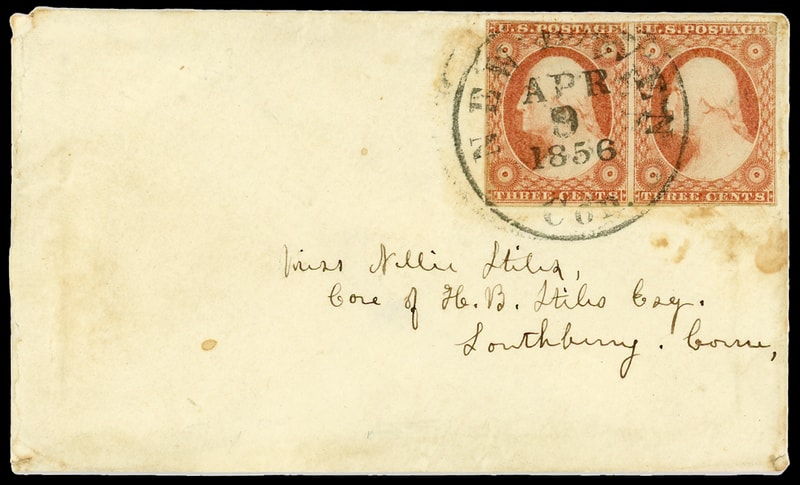 U.S. POSTAGE U.S. POSTAGE
NEW LONDON
APR
9
1856
Con.
THREE CENTS THREE CENTS
Miss Nellie Stiles,
Care of H. B. Stiles Esq.
Southbury. Conn,